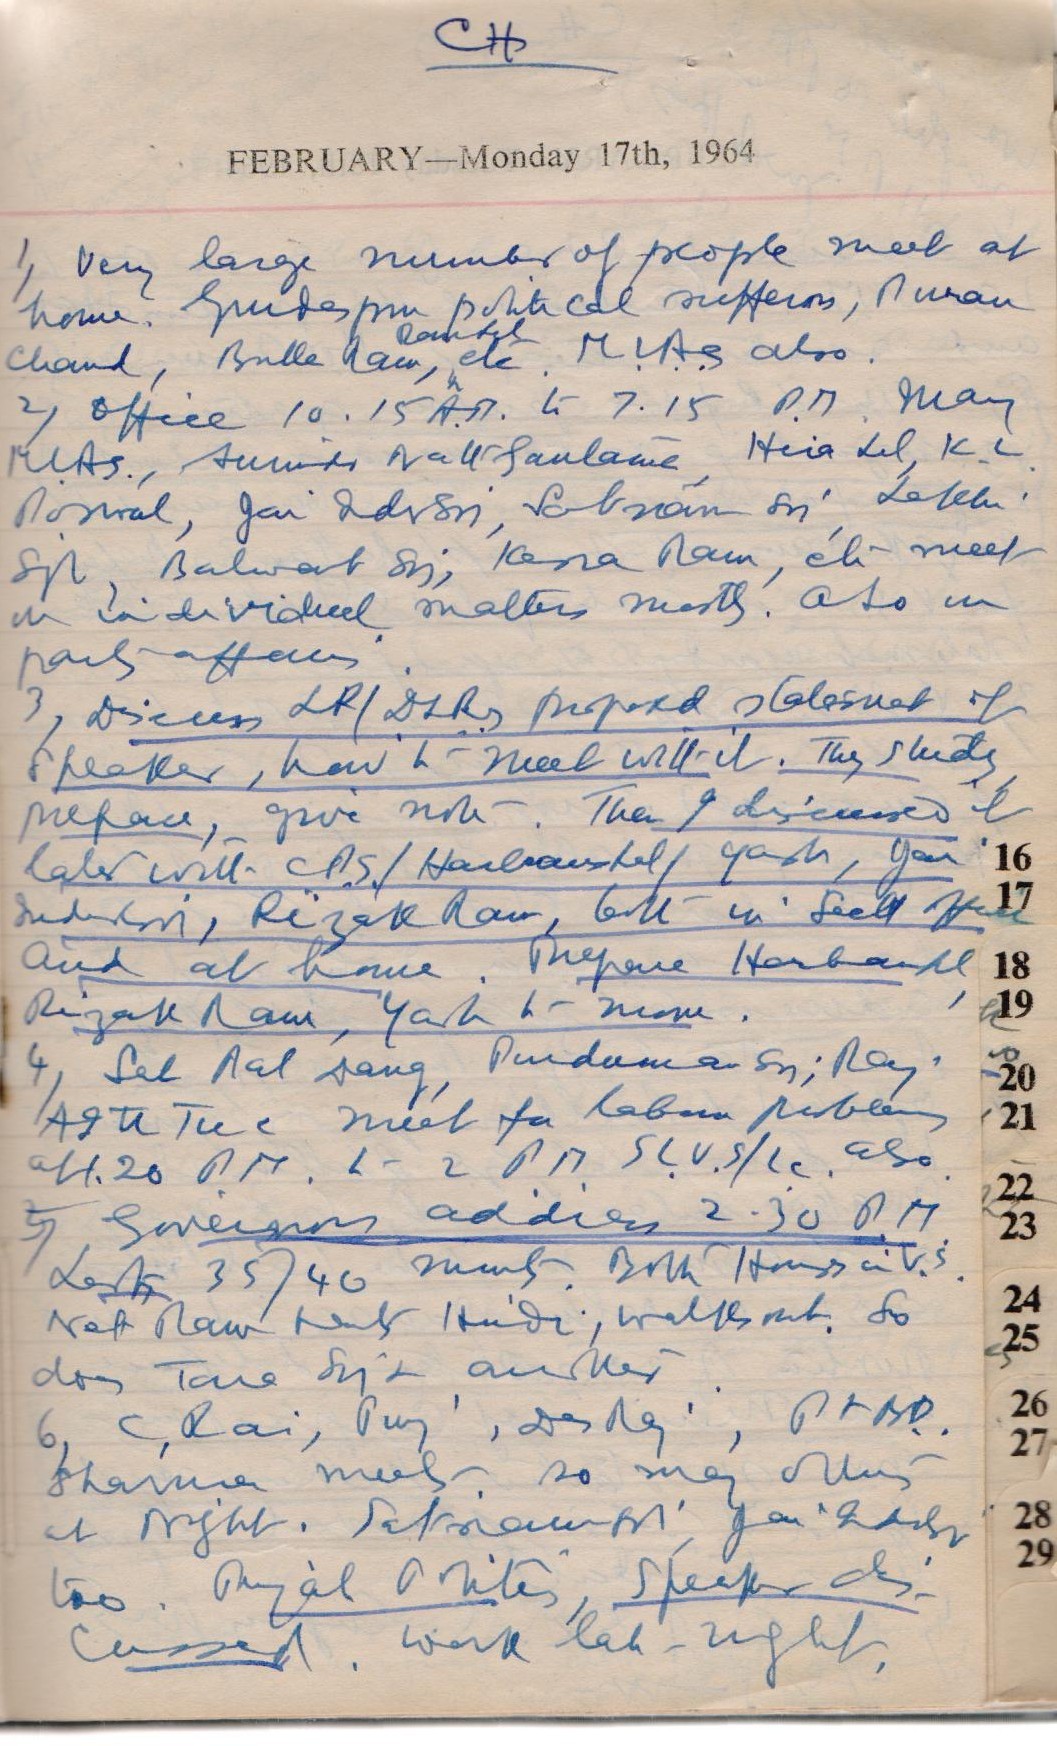 CH
FEBRUARY—Monday 17th, 1964
1, Very large number of people meet at
home. Gurdaspur political sufferers, Puran
Chand, Bulle Ram, Ramlal etc. M.L.A.s also.
2, Office 10.15 A.M. to 7.15 P.M. Many
M.L.As., Surinder Nath Gautama, Hira Lal, K. L.
Poswal, Jai Inder Sij, Satnam Sij, Lakhi
Sijh, Balwant Sij, Kesra Ram, etc meet
in individual matters mostly. Also in
party affairs.
3, Discuss LR/DLRs proposed statement of
Speaker, how to meet with it. They study,
prepare, give note. Then I discussed it
later with C.P.S./Harbanslal/Yash, Jai
Indersij, Rizak Ram, both in Sectt
and at home. Prepare Harbanslal,
Rizak Ram, Yash to move.
4, Sat Pal Dang, Parduman Sij; Raj.
meet for labour problems
at 1.20 P.M. to 2 P.M. also.
5, Governors address 2.30 P.M.
Lasts 35/40 minuts. Both Houses in V.S.
Ram wants Hindi, walks out. So
does Tara Sij & another.
6, C, Rai, Puri, Des Raj, Pt BD.
Sharma meet. So many others
at night. Jai Inder
too. Punjab Politics, Speaker dis-
cussed. Work late night.
16
17
18
19
20
21
22
23
24
25
26
27
28
29